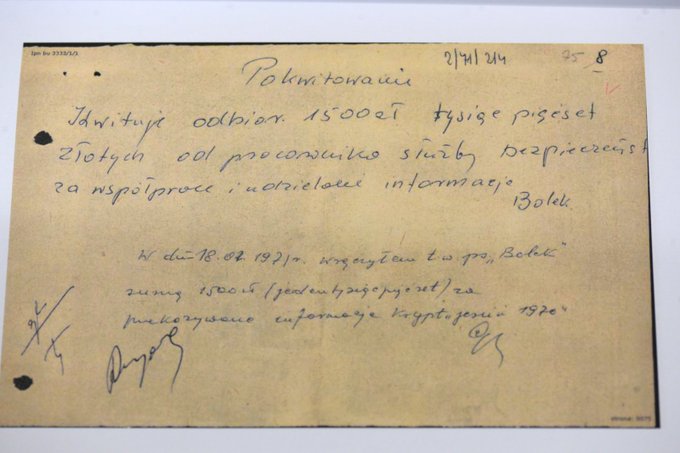 Ipn bu 3332/1/1
2/71/214
75 8
Pokwitowanie
Kwituje odbior 1500zł tysiąc pięcset
złotych od pracownika służby bezpieczeńst
za współprace i udzielanie informacje
Bolek
W dń 18.01 1971r. wręczyłem t.w ps „Bolek”
sumę 1500zł (jedentysiącpięcset) za
przekazywane informacje krypt „jesień 1970”
strona: 8075